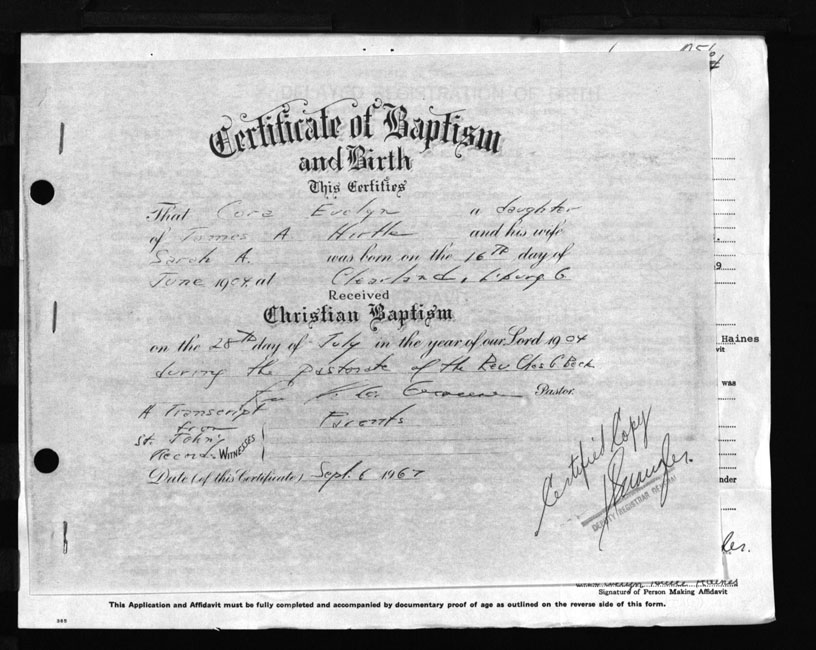 Certificate of Baptism
and Birth
This Certifies
That Cora Evelyn a daughter
of James A. Hirtle and his wife
Sarah A. was born on the 16TH day of
June 1904 at Clearland, L'burg C.
Received
Christian Baptism
on the 28th day of July in the year of our Lord 1904
during the pastorate of the Rev Chas G Beck
Pastor.
A Transcript
from
St. John's
Records
Parents
WITNESSES
Date (of this Certificate) Sept. 6 1967
Certified Copy
DEPUTY REGISTRAR GENERAL
Haines
vit
was
nder
Haines
Signature of Person Making Affidavit
This Application and Affidavit must be fully completed and accompanied by documentary proof of age as outlined on the reverse side of this form.